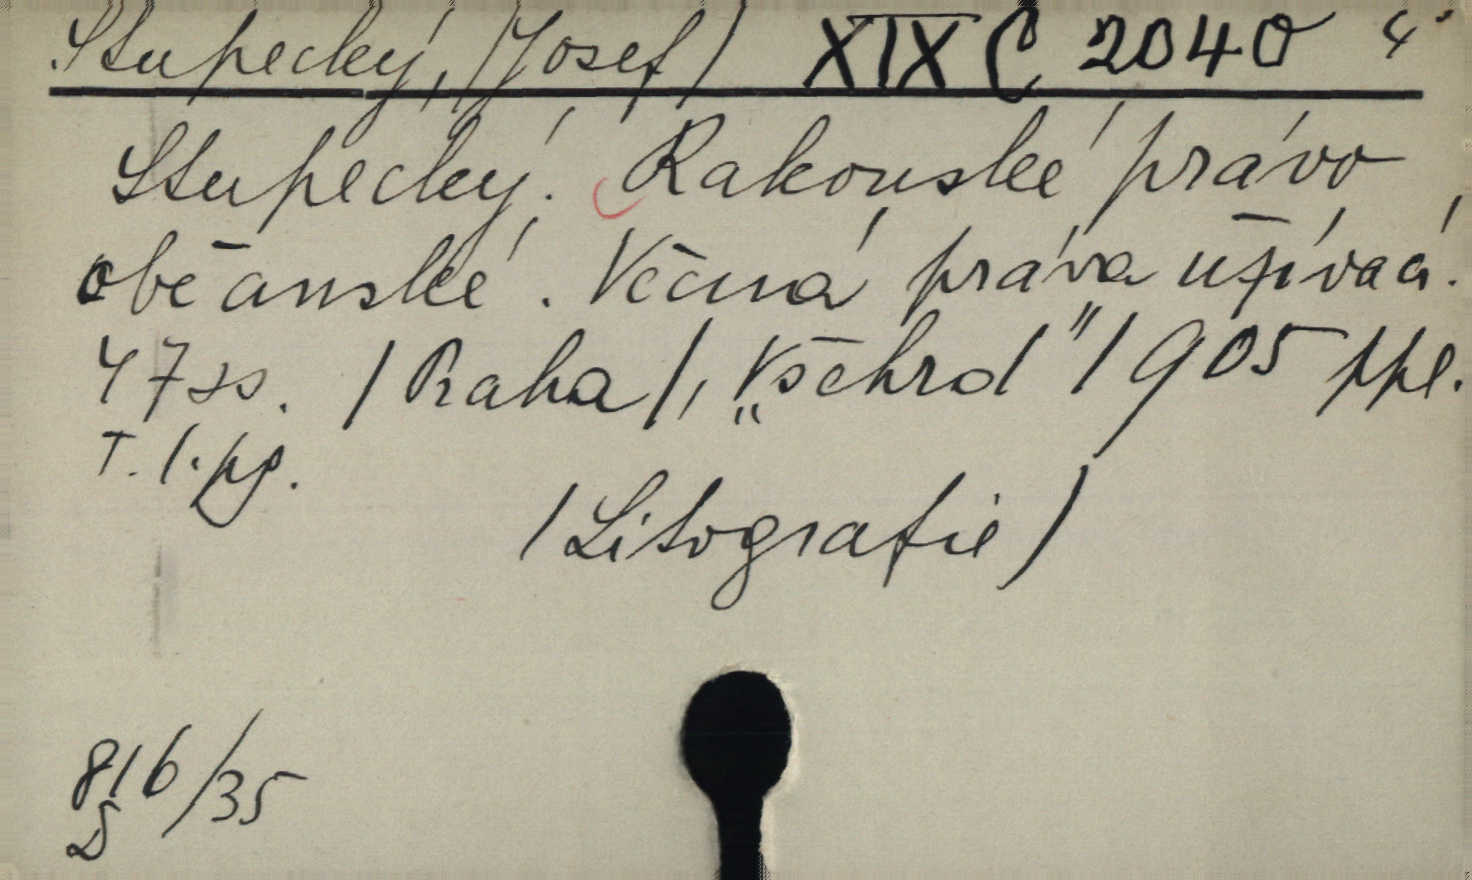 Stupecký, /Josef/ XIX C 2040 4°
Stupecký: Rakouské právo
občanské. Věcná práva užívací.
47 ss. /Praha/, „Všehrd" 1905 ppl.
T. l. pg.
/Litografie/
816/35
D